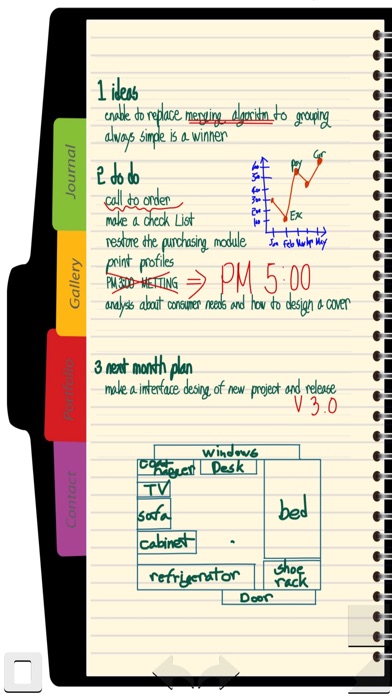 Journal
Gallery
Portfolio
Contact
1 ideas
enable to replace merging algorithm to grouping
always simple is a winner
2 to do
call to order
make a check List
restore the purchasing module
print profiles
PM 3:00 METTING ⇒ PM 5:00
analysis about consumer needs and how to design a cover
Pay
Car
Ex
Jan Feb Mar Apr May
3 next month plan
make a interface desing of new project and release
V 3.0
windows
coat hanger
Desk
TV
sofa
bed
cabinet
refrigerator
shoe rack
Door